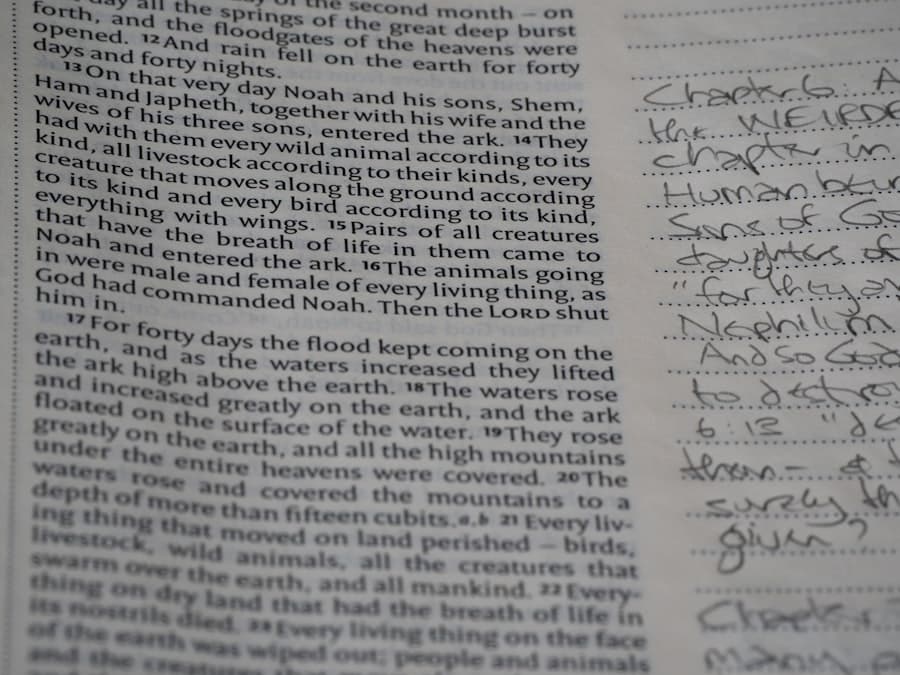 day all the springs of the great deep burst
of the second month – on
forth, and the floodgates of the heavens were
opened. 12 And rain fell on the earth for forty
days and forty nights.
13 On that very day Noah and his sons, Shem,
Ham and Japheth, together with his wife and the
wives of his three sons, entered the ark. 14 They
had with them every wild animal according to its
kind, all livestock according to their kinds, every
creature that moves along the ground according
to its kind and every bird according to its kind,
everything with wings. 15 Pairs of all creatures
that have the breath of life in them came to
Noah and entered the ark. 16 The animals going
in were male and female of every living thing, as
God had commanded Noah. Then the LORD shut
him in.
17 For forty days the flood kept coming on the
earth, and as the waters increased they lifted
the ark high above the earth. 18 The waters rose
and increased greatly on the earth, and the ark
floated on the surface of the water. 19 They rose
greatly on the earth, and all the high mountains
under the entire heavens were covered. 20 The
waters rose and covered the mountains to a
depth of more than fifteen cubits.a,b 21 Every liv-
ing thing that moved on land perished – birds,
livestock, wild animals, all the creatures that
swarm over the earth, and all mankind. 22 Every-
thing on dry land that had the breath of life in
its nostrils died. 23 Every living thing on the face
of the earth was wiped out; people and animals
and the creatures that
Chapter 6: A
the WEIRDE
chapter in
Human
Sons of Go
daughters of
"for they
Nephilim
And so God
to destro
6:13 "de
them – & t
surely th
given?
Chapter
many